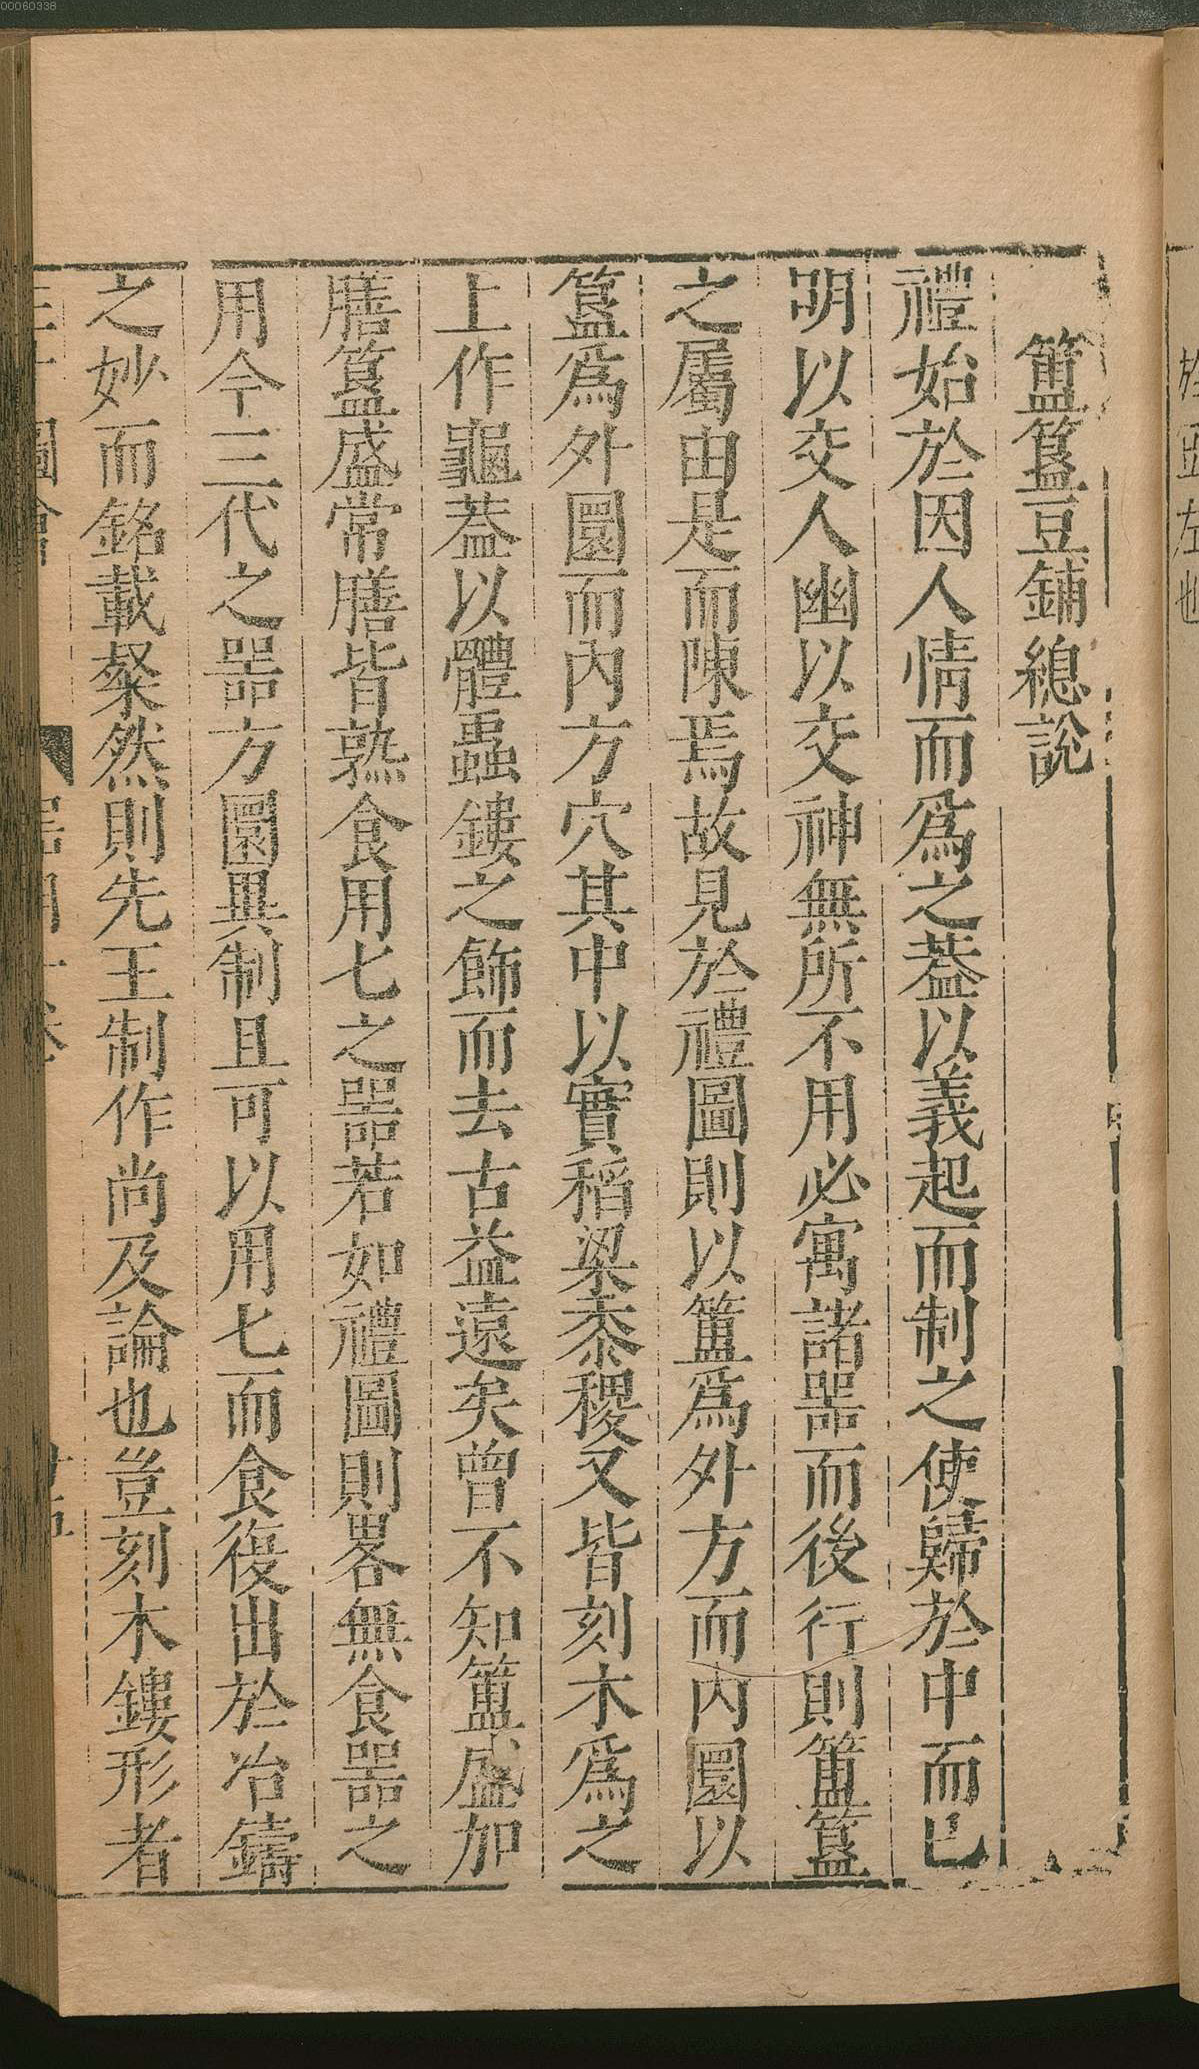 簠簋豆鋪總說
禮始於因人情而爲之葢以義起而制之使歸於中而已
明以交人幽以交神無所不用必寓諸噐而後行則簠簋
之屬由是而陳焉故見於禮圖則以簠爲外方而内圜以
簋爲外圜而内方穴其中以實稻粱黍稷又皆刻木爲之
上作龜葢以體蟲鏤之飾而去古益遠矣曾不知簠盛加
膳簋盛常膳皆熟食用匕之噐若如禮圖則畧無食噐之
用今三代之噐方圜異制且可以用匕而食復出於冶鑄
之妙而銘載粲然則先王制作尚及論也豈刻木鏤形者
00060338